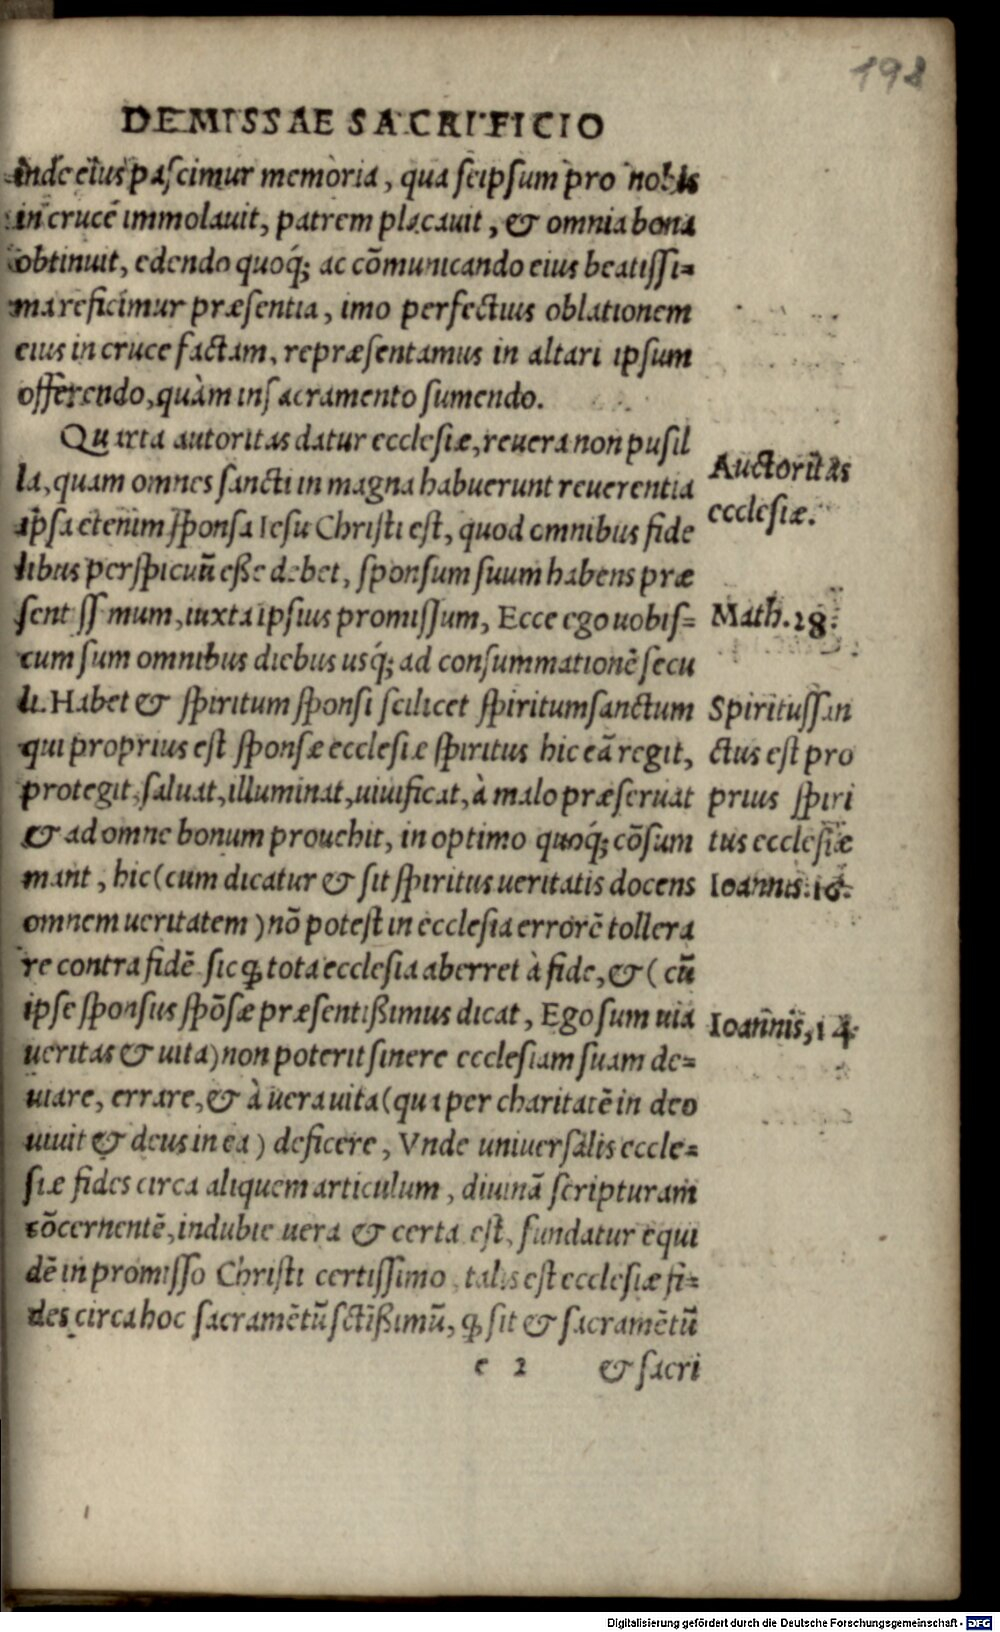 198
DE MISSAE SACRIFICIO
inde eius pascimur memoria, qua seipsum pro nobis
in crucē immolauit, patrem placauit, & omnia bona
obtinuit, edendo quoq́; ac cōmunicando eius beatissi=
ma reficimur præsentia, imo perfectius oblationem
eius in cruce factam, repræsentamus in altari ipsum
offerendo, quàm in sacramento sumendo.
Quarta autoritas datur ecclesiæ, reuera non pusil
la, quam omnes sancti in magna habuerunt reuerentia
ipsa etenim sponsa Iesu Christi est, quod omnibus fide
libus perspicuū esse debet, sponsum suum habens præ
sentissimum, iuxta ipsius promissum, Ecce ego uobis=
cum sum omnibus diebus usq́; ad consummationē secu
li. Habet & spiritum sponsi scilicet spiritum sanctum
qui proprius est sponsæ ecclesiæ spiritus hic eā regit,
protegit, saluat, illuminat, uiuificat, à malo præseruat
& ad omne bonum prouehit, in optimo quoq́; cōsum
mant, hic (cum dicatur & sit spiritus ueritatis docens
omnem ueritatem) nō potest in ecclesia errorē tollera
re contra fidē sic ꝙ tota ecclesia aberret à fide, & (cū
ipse sponsus spōsæ præsentißimus dicat, Ego sum uia
ueritas & uita) non poterit sinere ecclesiam suam de=
uiare, errare, & à uera uita (qui per charitatē in deo
uiuit & deus in ea) deficere, Vnde uniuersalis eccle=
siæ fides circa aliquem articulum, diuinā scripturam
cōcernentē, indubie uera & certa est, fundatur equi
dē in promisso Christi certissimo, talis est ecclesiæ fi=
des circa hoc sacramētū sctīßimū, ꝙ sit & sacramētū
e 2 & sacri
Auctoritas
ecclesiæ.
Math. 28.
Spiritussan
ctus est pro
prius spiri
tus ecclesiæ
Ioannis. 16.
Ioannis, 14.
Digitalisierung gefördert durch die Deutsche Forschungsgemeinschaft - DFG